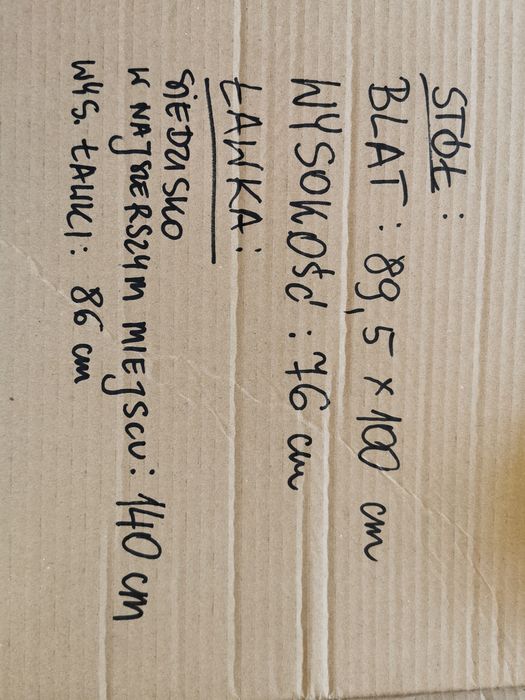 STÓŁ:
BLAT: 89,5 x 100 cm
WYSOKOŚĆ: 76 cm
ŁAWKA:
SIEDZISKO
W NAJSZERSZYM MIEJSCU: 140 cm
WYS. ŁAWKI: 86 cm